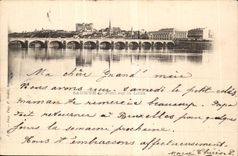 SAUMUR
Ma chère Grand'mère
Nous avons reçu Samedi le petit colis
maman te remercie beaucoup. Papa
doit retourner à Bruxelles pour quelques
jours la semaine prochaine.
Nous t'embrassons affectueusement
Marie Thérèse